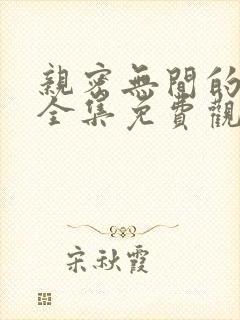 親密無間的
全集免費觀
宋秋霞